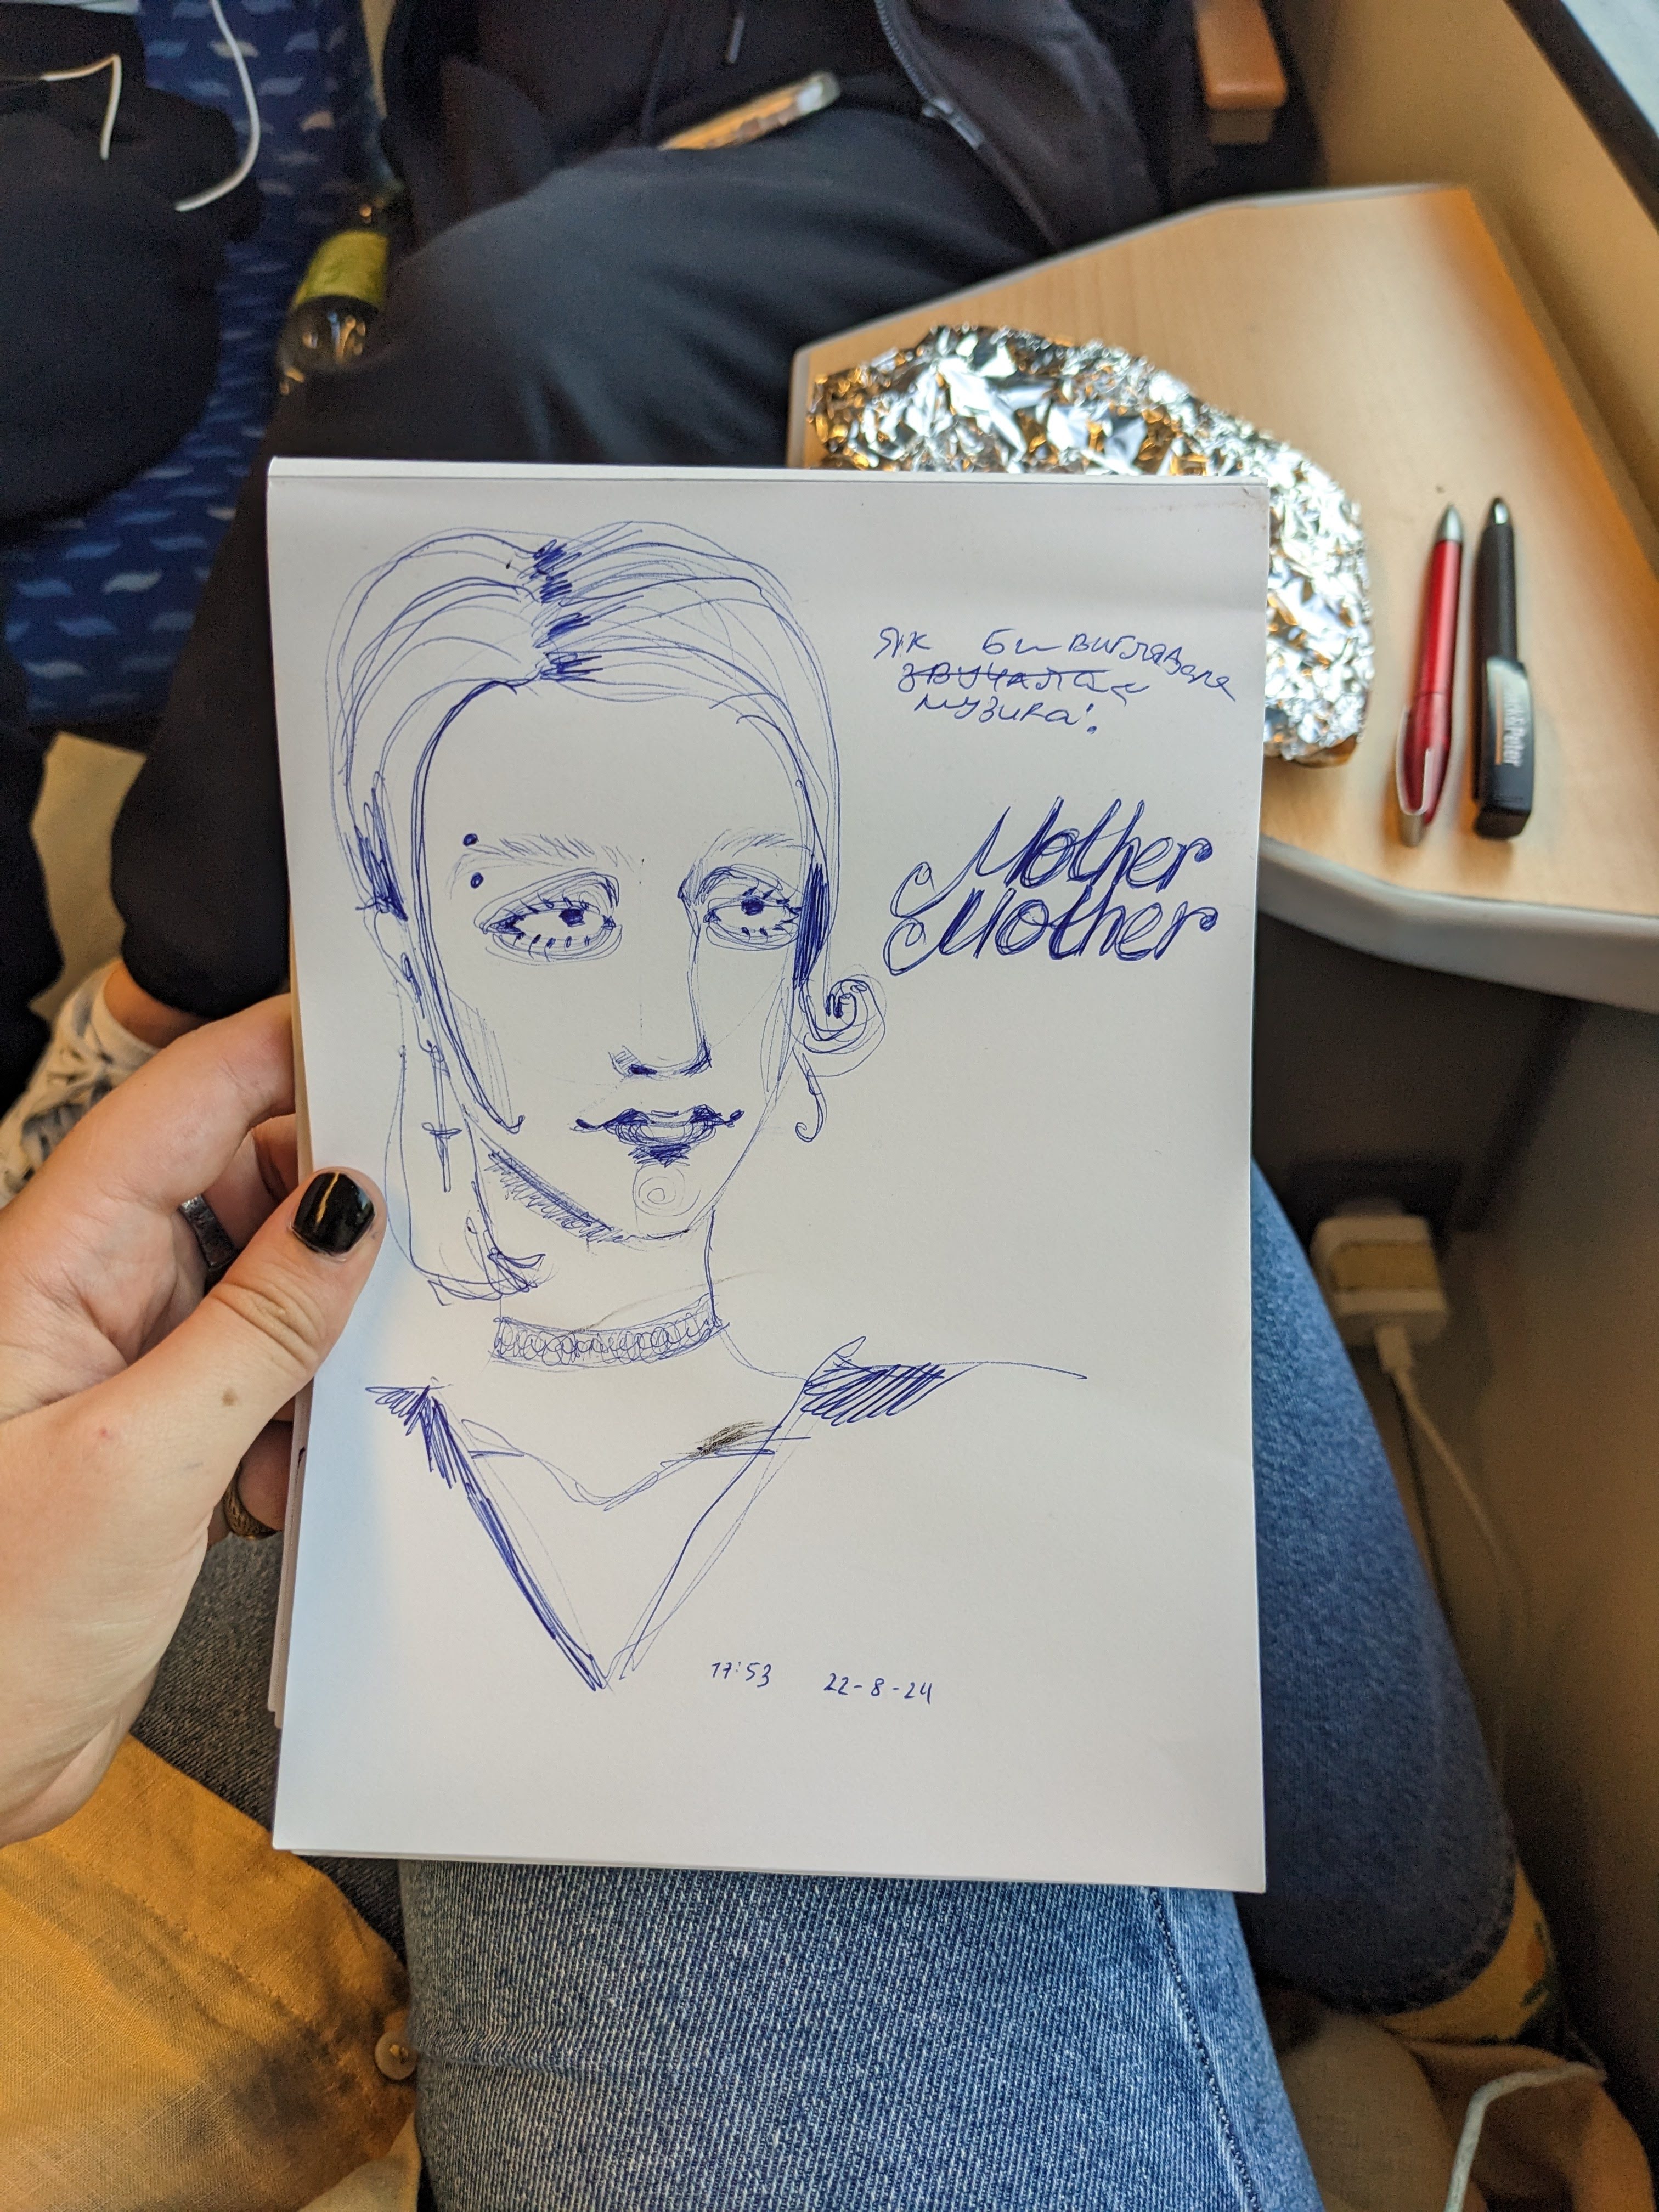 Як би виглядала
звучала
музика?
Mother
Mother
17:53 22-8-24